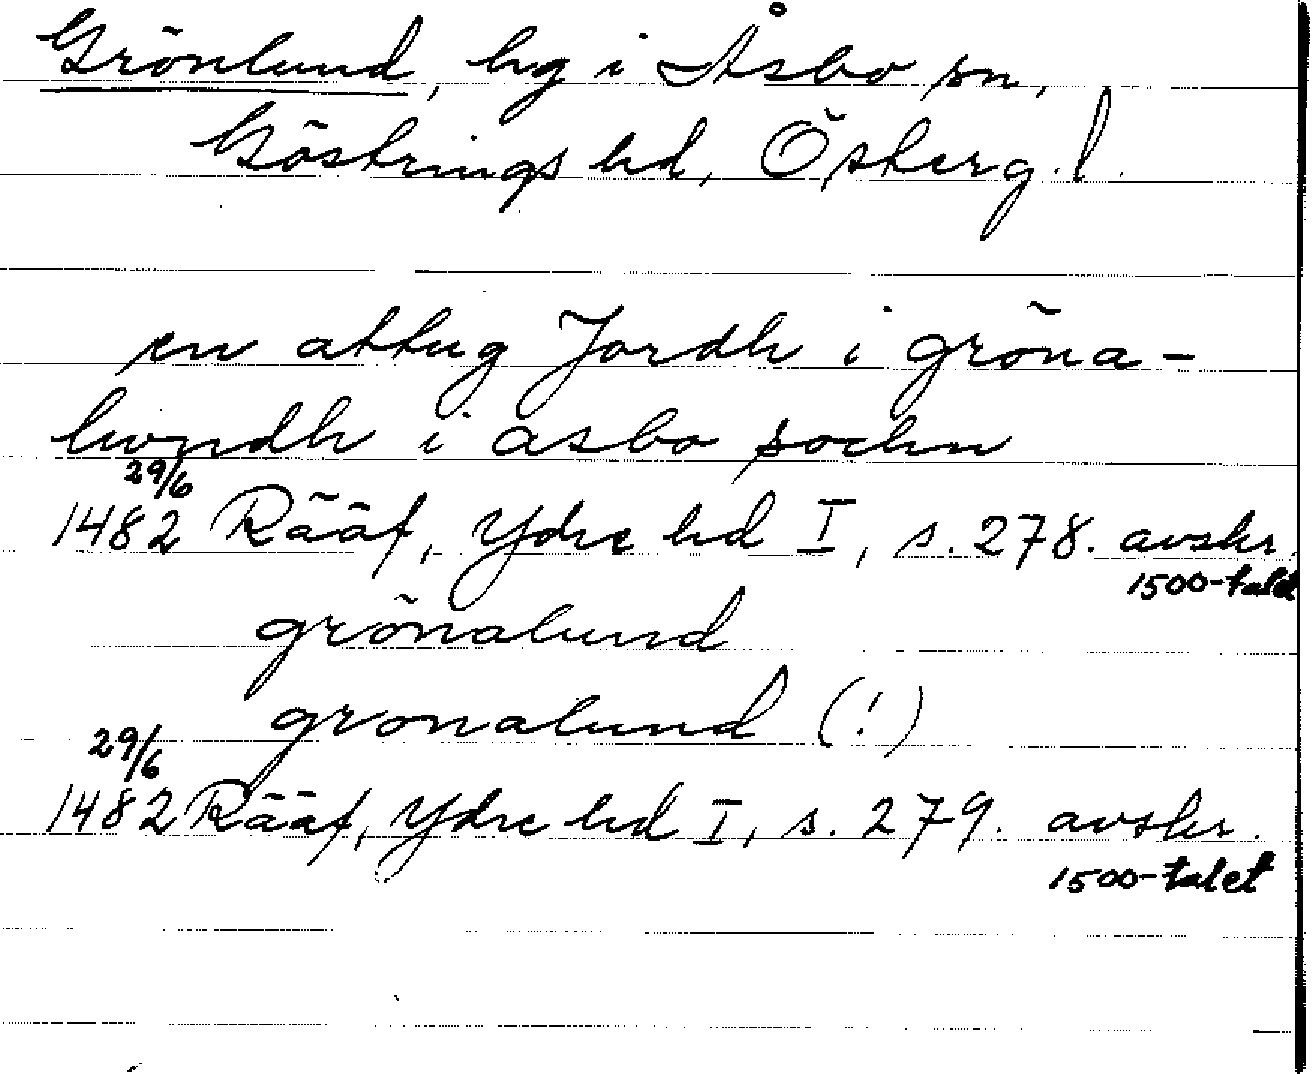 Grönlund, hg i Åsbo sn,
Göstrings hd, Österg. l.
en attug Jordh i gröna-
lwndh i asbo sochn
29/6
1482 Rääf, Ydre hd I, s. 278. avskr.
1500-talet
grönalund
gronalund (!)
29/6
1482 Rääf, Ydre hd I, s. 279. avskr.
1500-talet